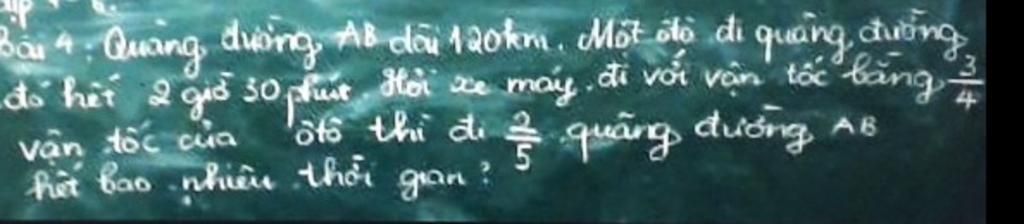 Bài 4: Quãng đường AB dài 120km. Một ôtô đi quãng đường
đó hết 2 giờ 30 phút Hỏi xe máy đi với vận tốc bằng 3/4
vận tốc của ôtô thì đi 2/5 quãng đường AB
hết bao nhiêu thời gian?